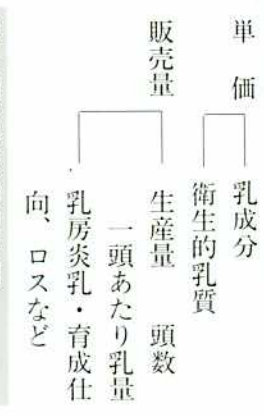 単価
乳成分
衛生的乳質
販売量
生産量 頭数
一頭あたり乳量
乳房炎乳・育成仕
向、ロスなど